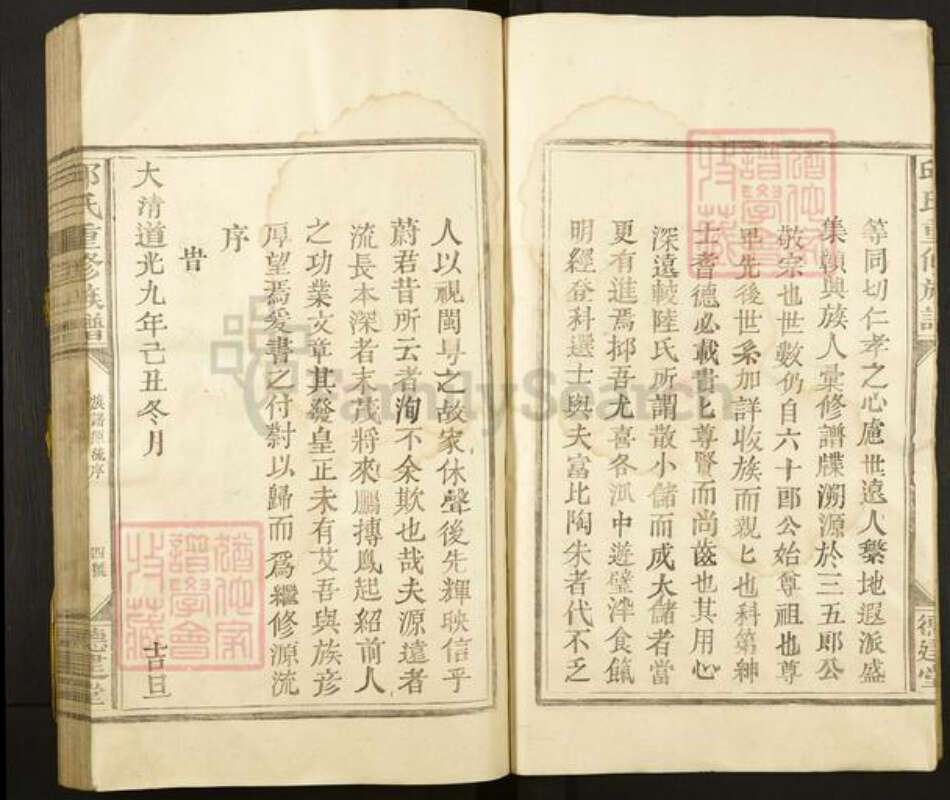 等同切仁孝之心慮世遠人繁地遐派盛
集傾與族人彙修譜牒溯源於三五郎公
敬宗也世數仍自六十郎公始尊祖也尊
卑先後世系加詳收族而親匕也科第紳
士耆德必載書匕尊賢而尚齒也其用心
深遠較陸氏所謂散小儲而成大儲者當
更有進焉抑吾尤喜各派中遊璧泮食餼
明經登科選士與夫富比陶朱者代不乏
人以視閩粵之故家休聲後先輝映信乎
蔚君昔所云者洵不余欺也哉夫源遠者
流長本深者末茂將來鵬摶鳳起紹前人
之功業文章其發皇正未有艾吾與族彥
厚望焉爰書之付對以歸而為繼修源流
序
旹
大清道光九年己丑冬月 吉旦
邱氏重修族譜
族譜源流序
四號
德建堂
邱氏重修族譜
德建堂
猶他家譜學會收藏
猶他家譜學會收藏
FamilySearch